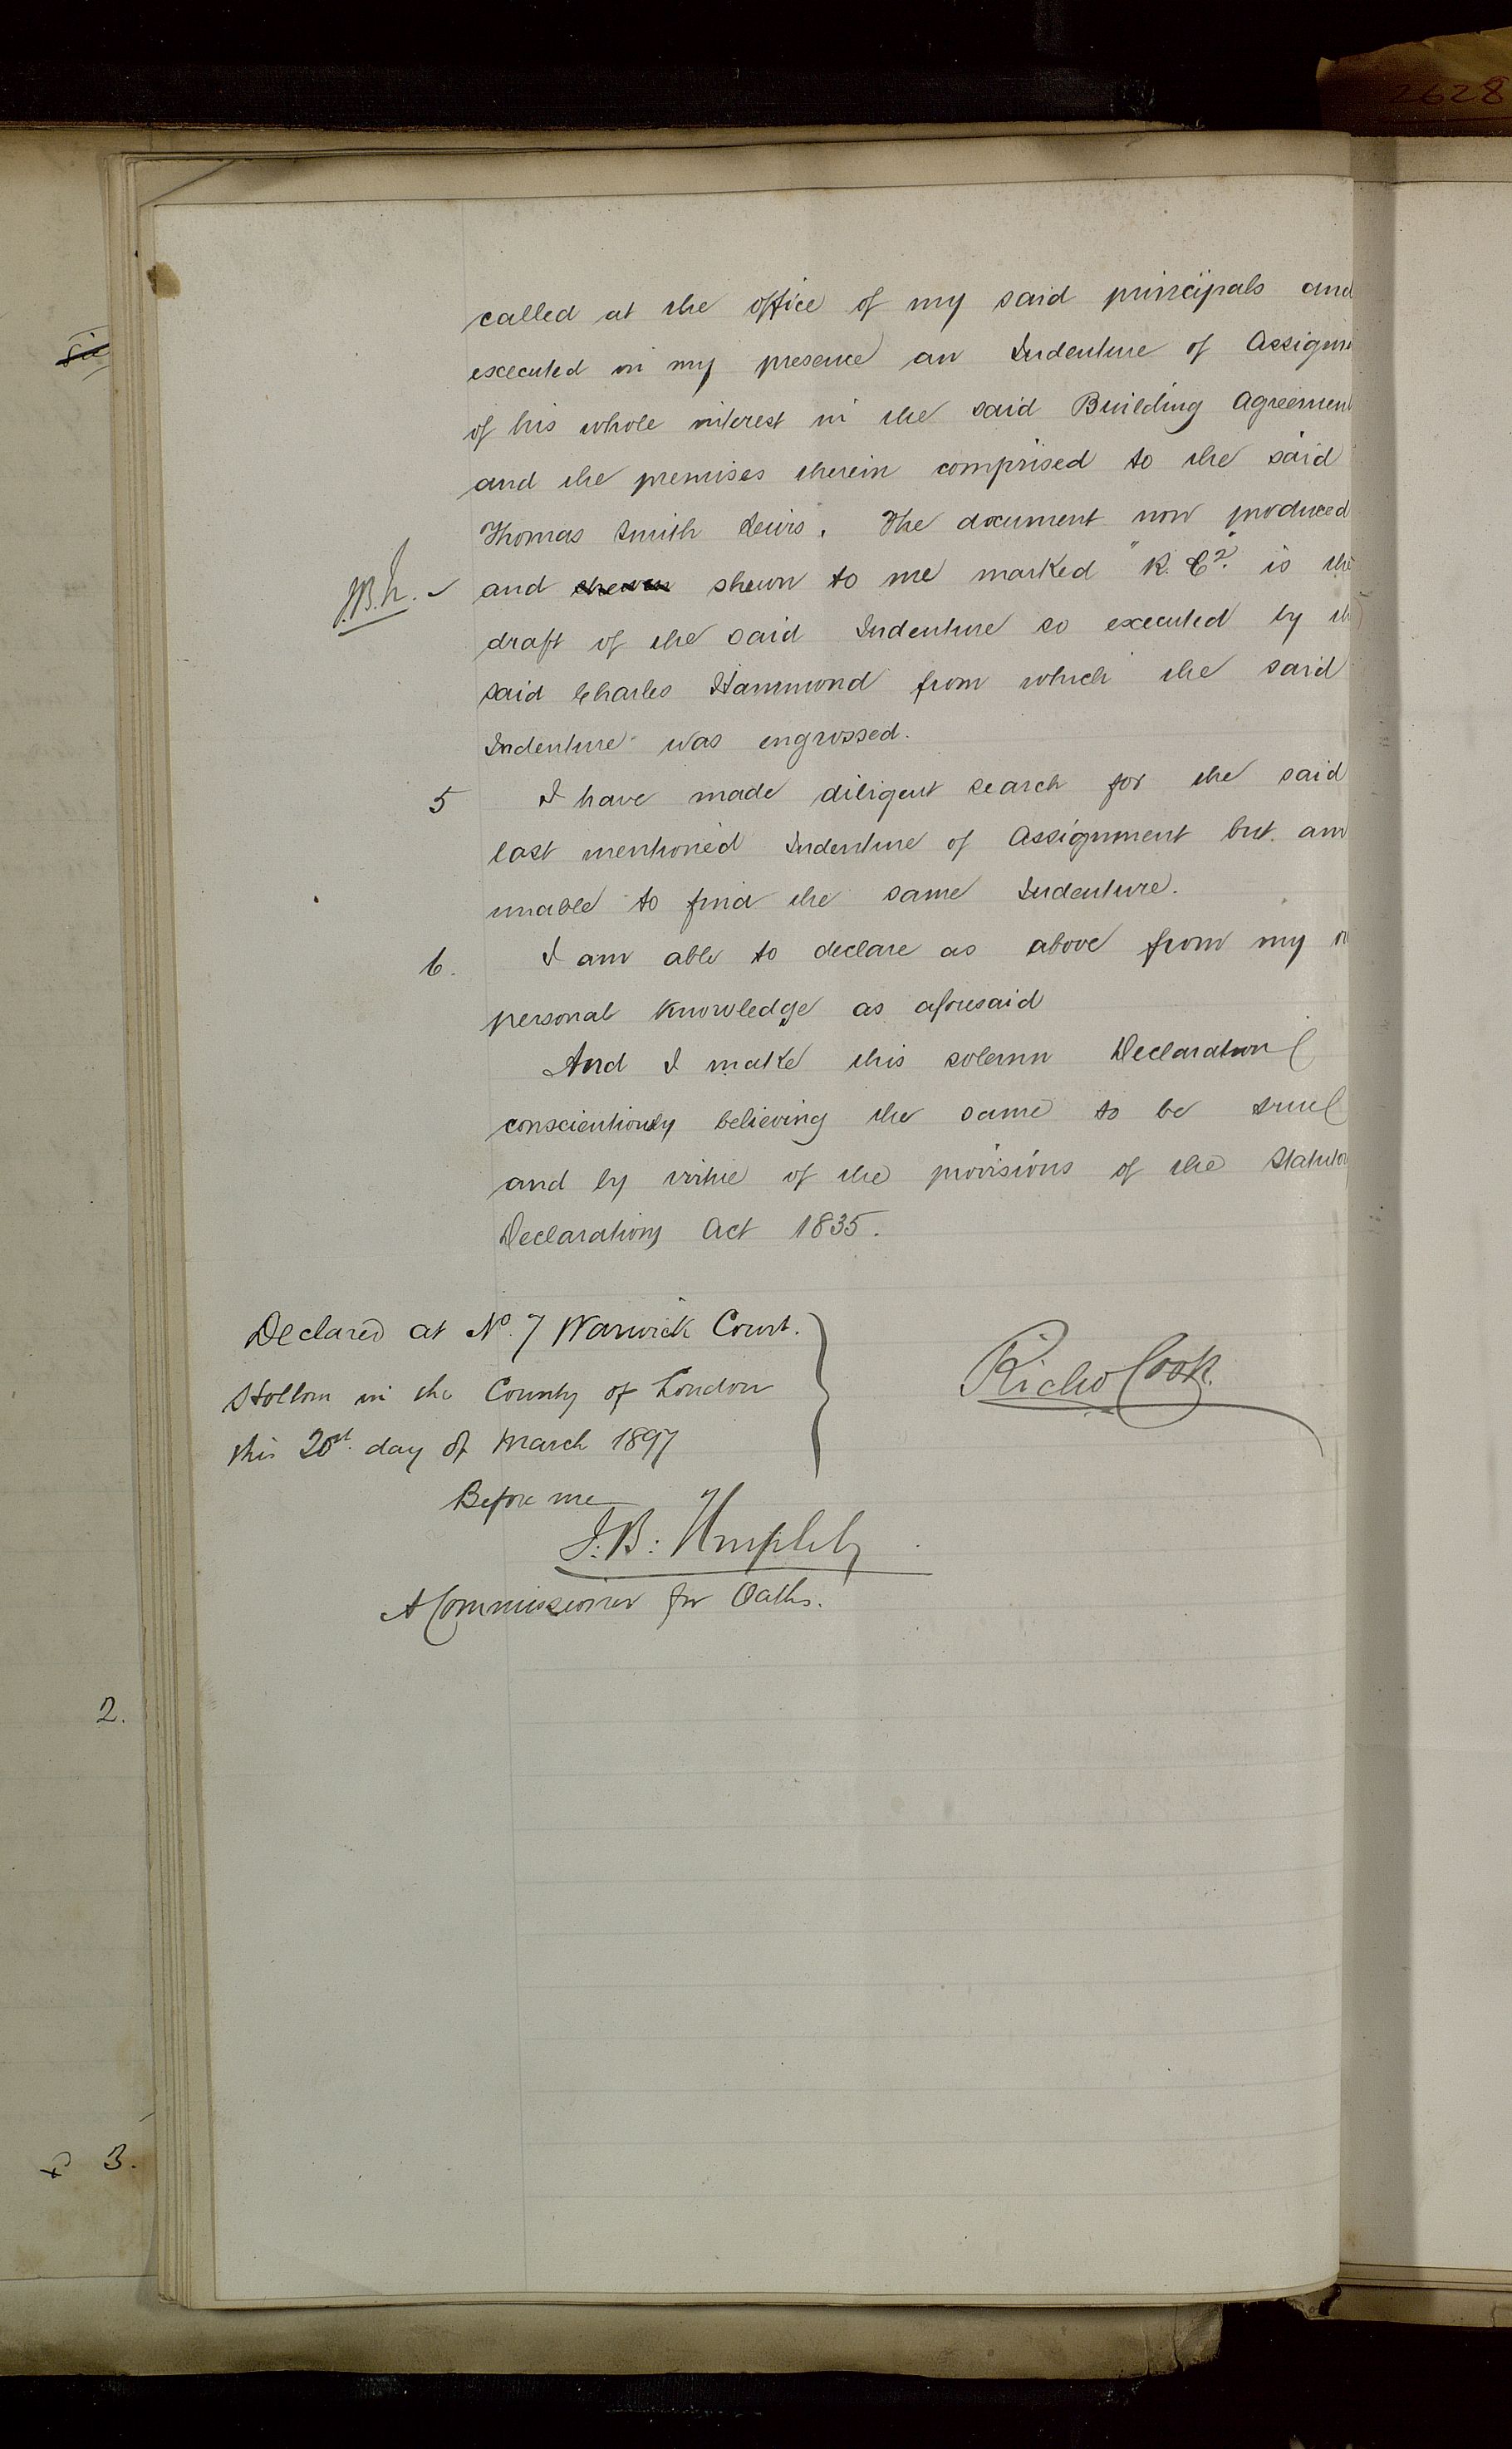 2628
called at the office of my said principals and
executed in my presence an Indenture of Assignm
of his whole interest in the said Building Agreement
and the premises therein comprised to the said
Thomas Smith Lewis. The document now produced
J.B.h. and shewn shewn to me marked "R. C2". is the
draft of the said Indenture so executed by the
said Charles Hammond from which the said
Indenture was engrossed.
5 I have made diligent search for the said
last mentioned Indenture of Assignment but am
unable to find the same Indenture.
6. I am able to declare as above from my
personal knowledge as aforesaid
And I make this solemn Declaration
conscientiously believing the same to be true
and by virtue of the provisions of the Statutory
Declarations Act 1835.
Declared at No. 7 Warwick Court.
Holborn in the County of London
this day of March 1897
Richd Cook.
Before me
J. B:
A Commissioner for Oaths.
2.
3.